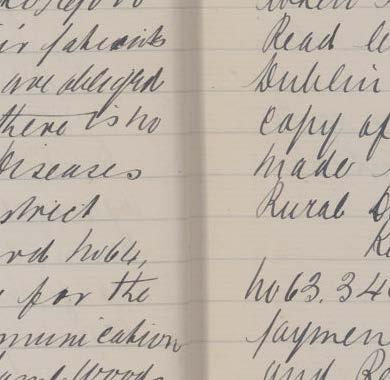 ir patients
are obliged
there is no
Diseases
strict
rd No 64,
for the
munication
Woods
Read le
Dublin
Copy of
made
Rural D
No 63. 34
Paymen
and Ra